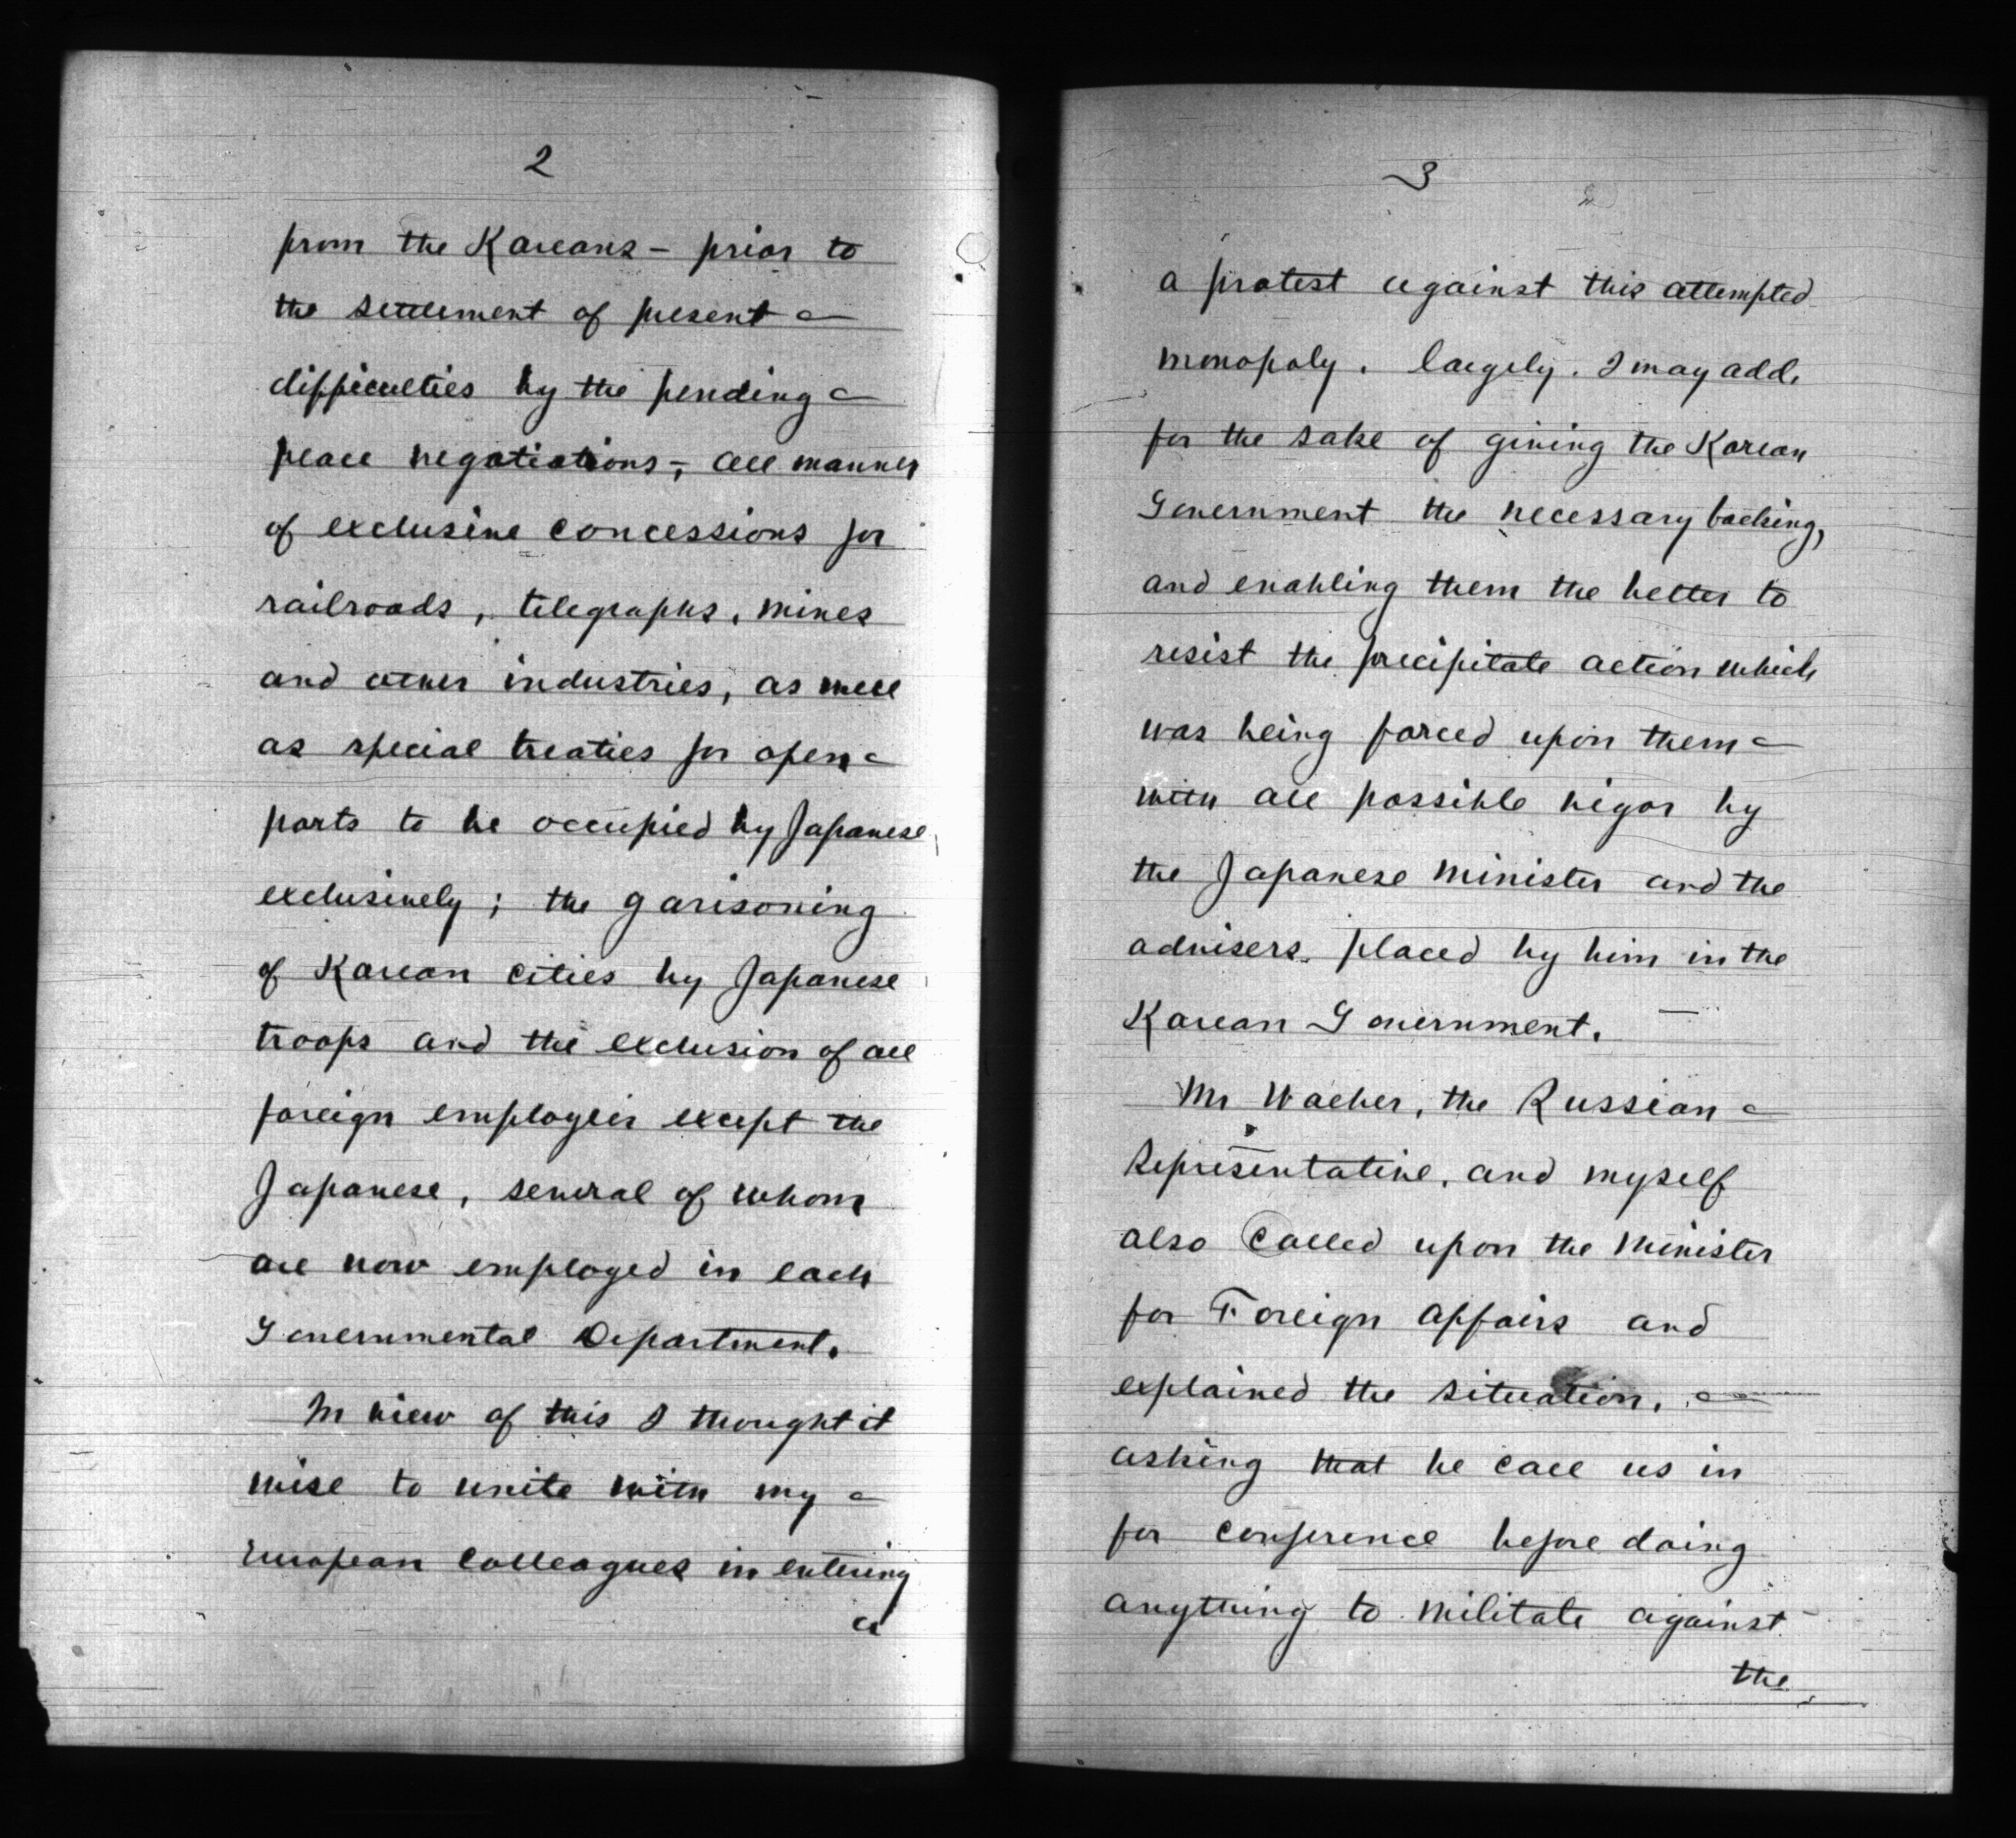 2
from the Koreans – prior to
the settlement of present –
difficulties by the pending –
peace negotiations –, all manner
of exclusive concessions for
railroads, telegraphs, mines
and other industries, as well
as special treaties for open –
ports to be occupied by Japanese
exclusively; the garisoning
of Korean cities by Japanese
troops and the exclusion of all
foreign employeés except the
Japanese, several of whom
are now employed in each
Governmental Department.
In view of this I thought it
wise to unite with my –
European Colleagues in entering
a
3
a protest against this attempted
monopoly. largely. I may add,
for the sake of giving the Korean
Government the necessary backing,
and enabling them the better to
resist the precipitate action which
was being forced upon them –
with all possible vigor by
the Japanese Minister and the
advisers placed by him in the
Korean Government. –
Mr Waeber, the Russian –
Representative, and myself
also called upon the Minister
for Foreign Affairs and
explained the situation, –
asking that he call us in
for conference before doing
anything to militate against
the